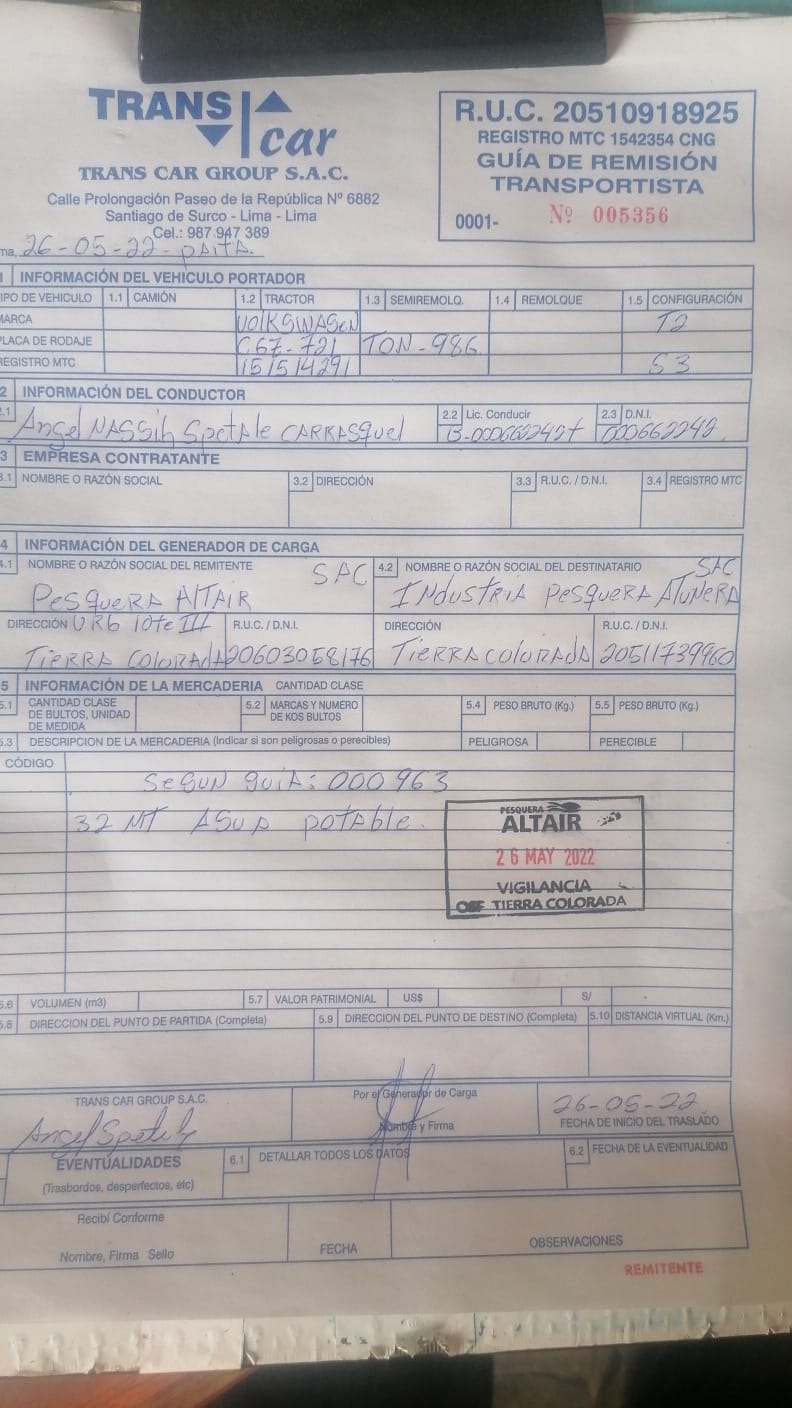 TRANS car
TRANS CAR GROUP S.A.C.
Calle Prolongación Paseo de la República Nº 6882
Santiago de Surco - Lima - Lima
Cel.: 987 947 389
R.U.C. 20510918925
REGISTRO MTC 1542354 CNG
GUÍA DE REMISIÓN
TRANSPORTISTA
0001- Nº 005356
ma, 26-05-22- PAITA.
1 INFORMACIÓN DEL VEHICULO PORTADOR
IPO DE VEHICULO 1.1 CAMIÓN 1.2 TRACTOR 1.3 SEMIREMOLQ. 1.4 REMOLQUE 1.5 CONFIGURACIÓN
MARCA VOLKSWAGEN T2
PLACA DE RODAJE C67-721 TON-986
REGISTRO MTC 151514291 S3
2 INFORMACIÓN DEL CONDUCTOR
2.1 Angel NASSIH Spetale CARRASquel 2.2 Lic. Conducir B-000662242 2.3 D.N.I. 000662242
3 EMPRESA CONTRATANTE
3.1 NOMBRE O RAZÓN SOCIAL 3.2 DIRECCIÓN 3.3 R.U.C. / D.N.I. 3.4 REGISTRO MTC
4 INFORMACIÓN DEL GENERADOR DE CARGA
4.1 NOMBRE O RAZÓN SOCIAL DEL REMITENTE 4.2 NOMBRE O RAZÓN SOCIAL DEL DESTINATARIO
PesqueRA AltAIR SAC INdustRIA PesqueRA AtuNeRA SAC
DIRECCIÓN URB lote III R.U.C. / D.N.I. DIRECCIÓN R.U.C. / D.N.I.
TIeRRA ColoRADA 20603058176 TIeRRA ColoRADA 20511739960
5 INFORMACIÓN DE LA MERCADERIA CANTIDAD CLASE
5.1 CANTIDAD CLASE DE BULTOS, UNIDAD DE MEDIDA 5.2 MARCAS Y NUMERO DE KOS BULTOS 5.4 PESO BRUTO (Kg.) 5.5 PESO BRUTO (Kg.)
5.3 DESCRIPCION DE LA MERCADERIA (Indicar si son peligrosas o perecibles) PELIGROSA PERECIBLE
CÓDIGO
SeGUN GUIA: 000963
32 MT AGUA potable.
PESQUERA
ALTAIR
26 MAY 2022
VIGILANCIA
TIERRA COLORADA
5.6 VOLUMEN (m3) 5.7 VALOR PATRIMONIAL US$ S/
5.8 DIRECCION DEL PUNTO DE PARTIDA (Completa) 5.9 DIRECCION DEL PUNTO DE DESTINO (Completa) 5.10 DISTANCIA VIRTUAL (Km.)
TRANS CAR GROUP S.A.C. Por el Generador de Carga 26-05-22
Nombre y Firma FECHA DE INICIO DEL TRASLADO
EVENTUALIDADES 6.1 DETALLAR TODOS LOS DATOS 6.2 FECHA DE LA EVENTUALIDAD
(Trasbordos, desperfectos, etc)
Recibí Conforme
Nombre, Firma Sello FECHA OBSERVACIONES
REMITENTE